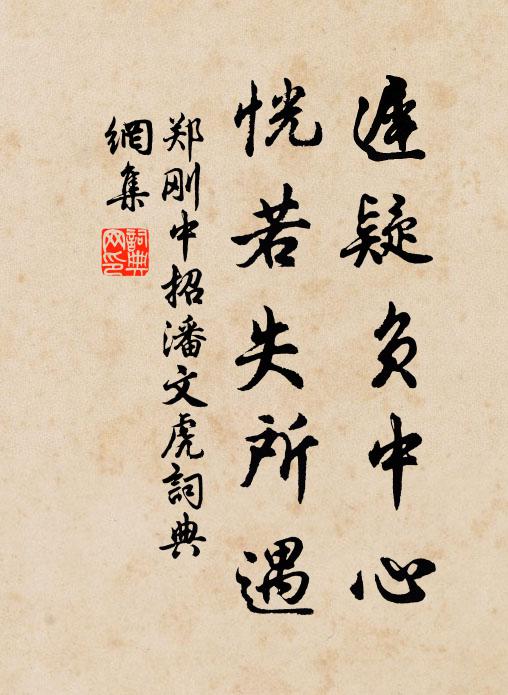 遲疑负中心
恍若失所遇
郑刚中招潘文虎詞典
網集
詞典
网印